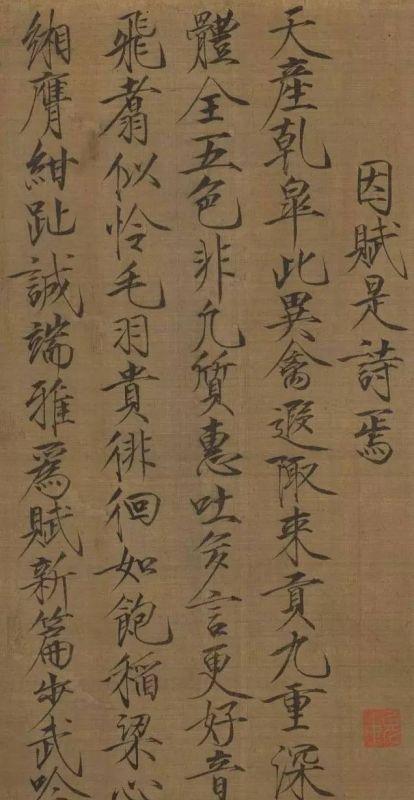 因賦是詩焉
天產乾皐此異禽遐陬来貢九重深
體全五色非凡質惠吐多言更好音
飛翥似怜毛羽貴徘徊如飽稻粱心
緗膺紺趾誠端雅為賦新篇步武吟